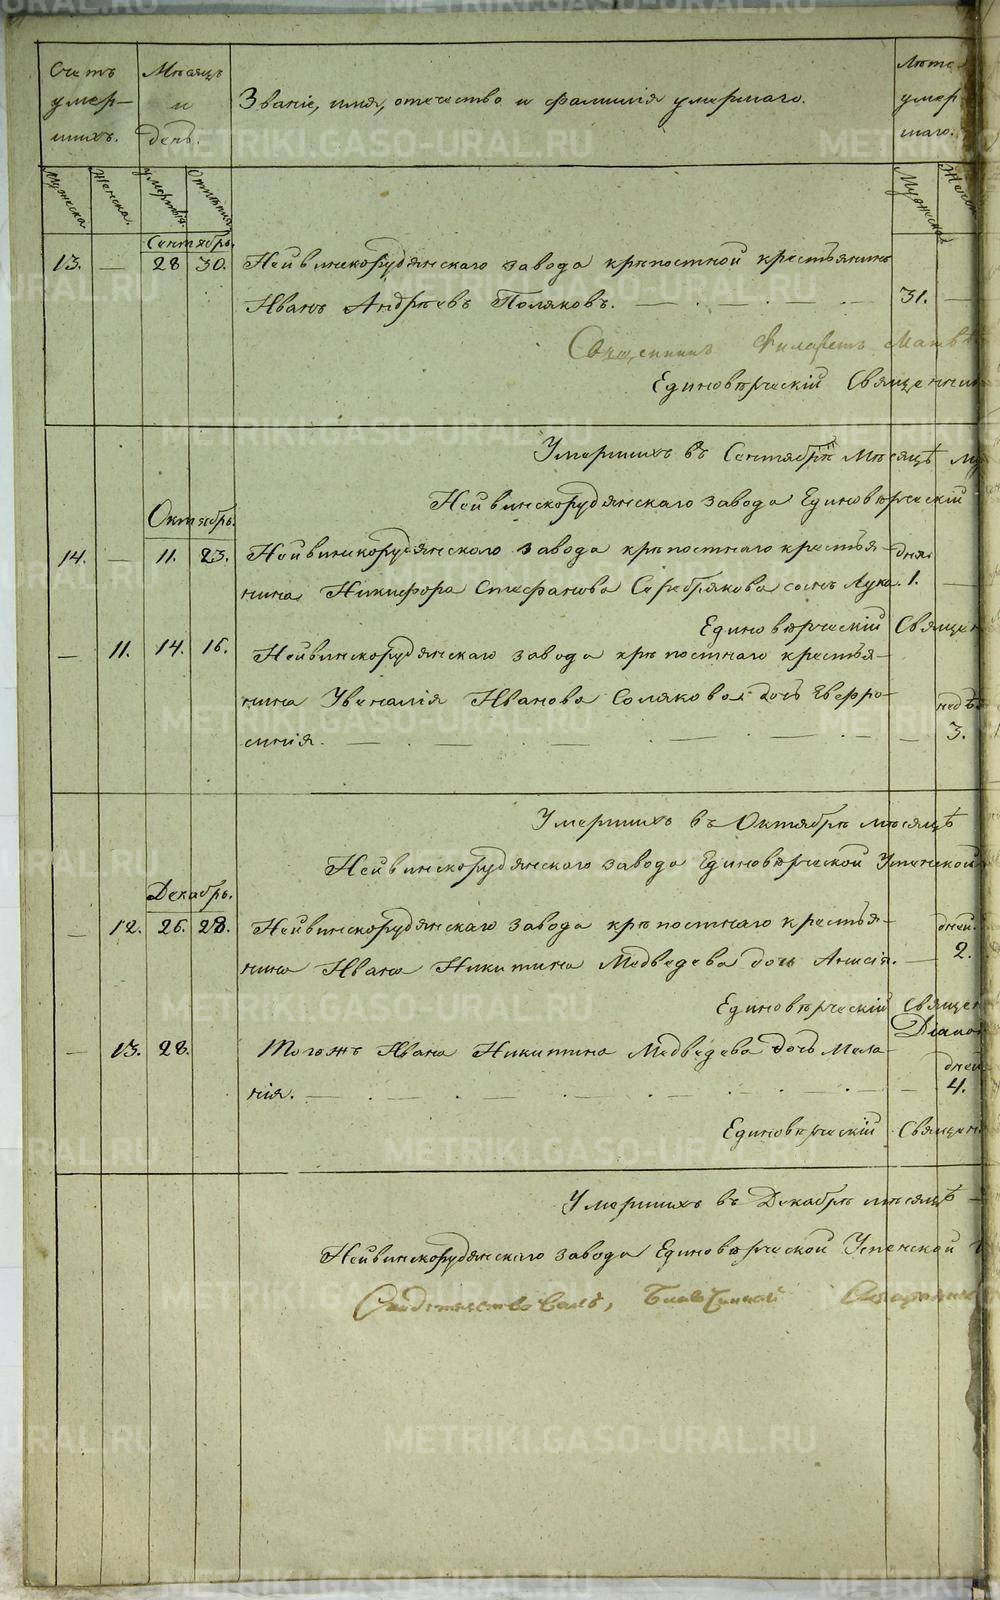 Счетъ умер- шихъ.
Мѣсяцъ и день.
Званіе, имя, отечество и фамилія умершаго.
Лѣта умер шаго.
Мужеска
Женска.
Смерти
Мужеска
Сентябрь.
13. — 28 30. Нейвинскорудянскаго завода крѣпостной крестьянинъ
Иванъ Андреевъ Поляковъ. — 31. —
Священникъ Филаретъ
Единовѣрческій Священник
Умершихъ въ Сентябрѣ мѣсяцѣ
Нейвинскорудянскаго завода Единовѣрческій
Октябрь.
14. — 11. 23. Нейвинскорудянскаго завода крѣпостнаго крестья- дня
нина Никифора Стефанова Серебрякова сынъ Лука. 1. —
Единовѣрческій Священ
— 11. 14. 16. Нейвинскорудянскаго завода крѣпостнаго крестья-
нина Увеналія Иванова дочь Евфро- недѣ
синія. — 3.
Умершихъ въ Октябрѣ мѣсяцѣ
Нейвинскорудянскаго завода Единовѣрческой Успенской
Декабрь.
— 12. 26. 28. Нейвинскорудянскаго завода крѣпостнаго крестья- дней.
нина Ивана Никитина Медведева дочь Анисія. — 2.
Единовѣрческій Священ
— 13. 28. Тогожъ Ивана Никитина Медведева дочь Мела- дней
нія. — 4.
Единовѣрческій Священ
Умершихъ въ Декабрѣ мѣсяцѣ —
Нейвинскорудянскаго завода Единовѣрческой Успенской
Свидетельствовалъ, Благочинной
METRIKI.GASO-URAL.RU